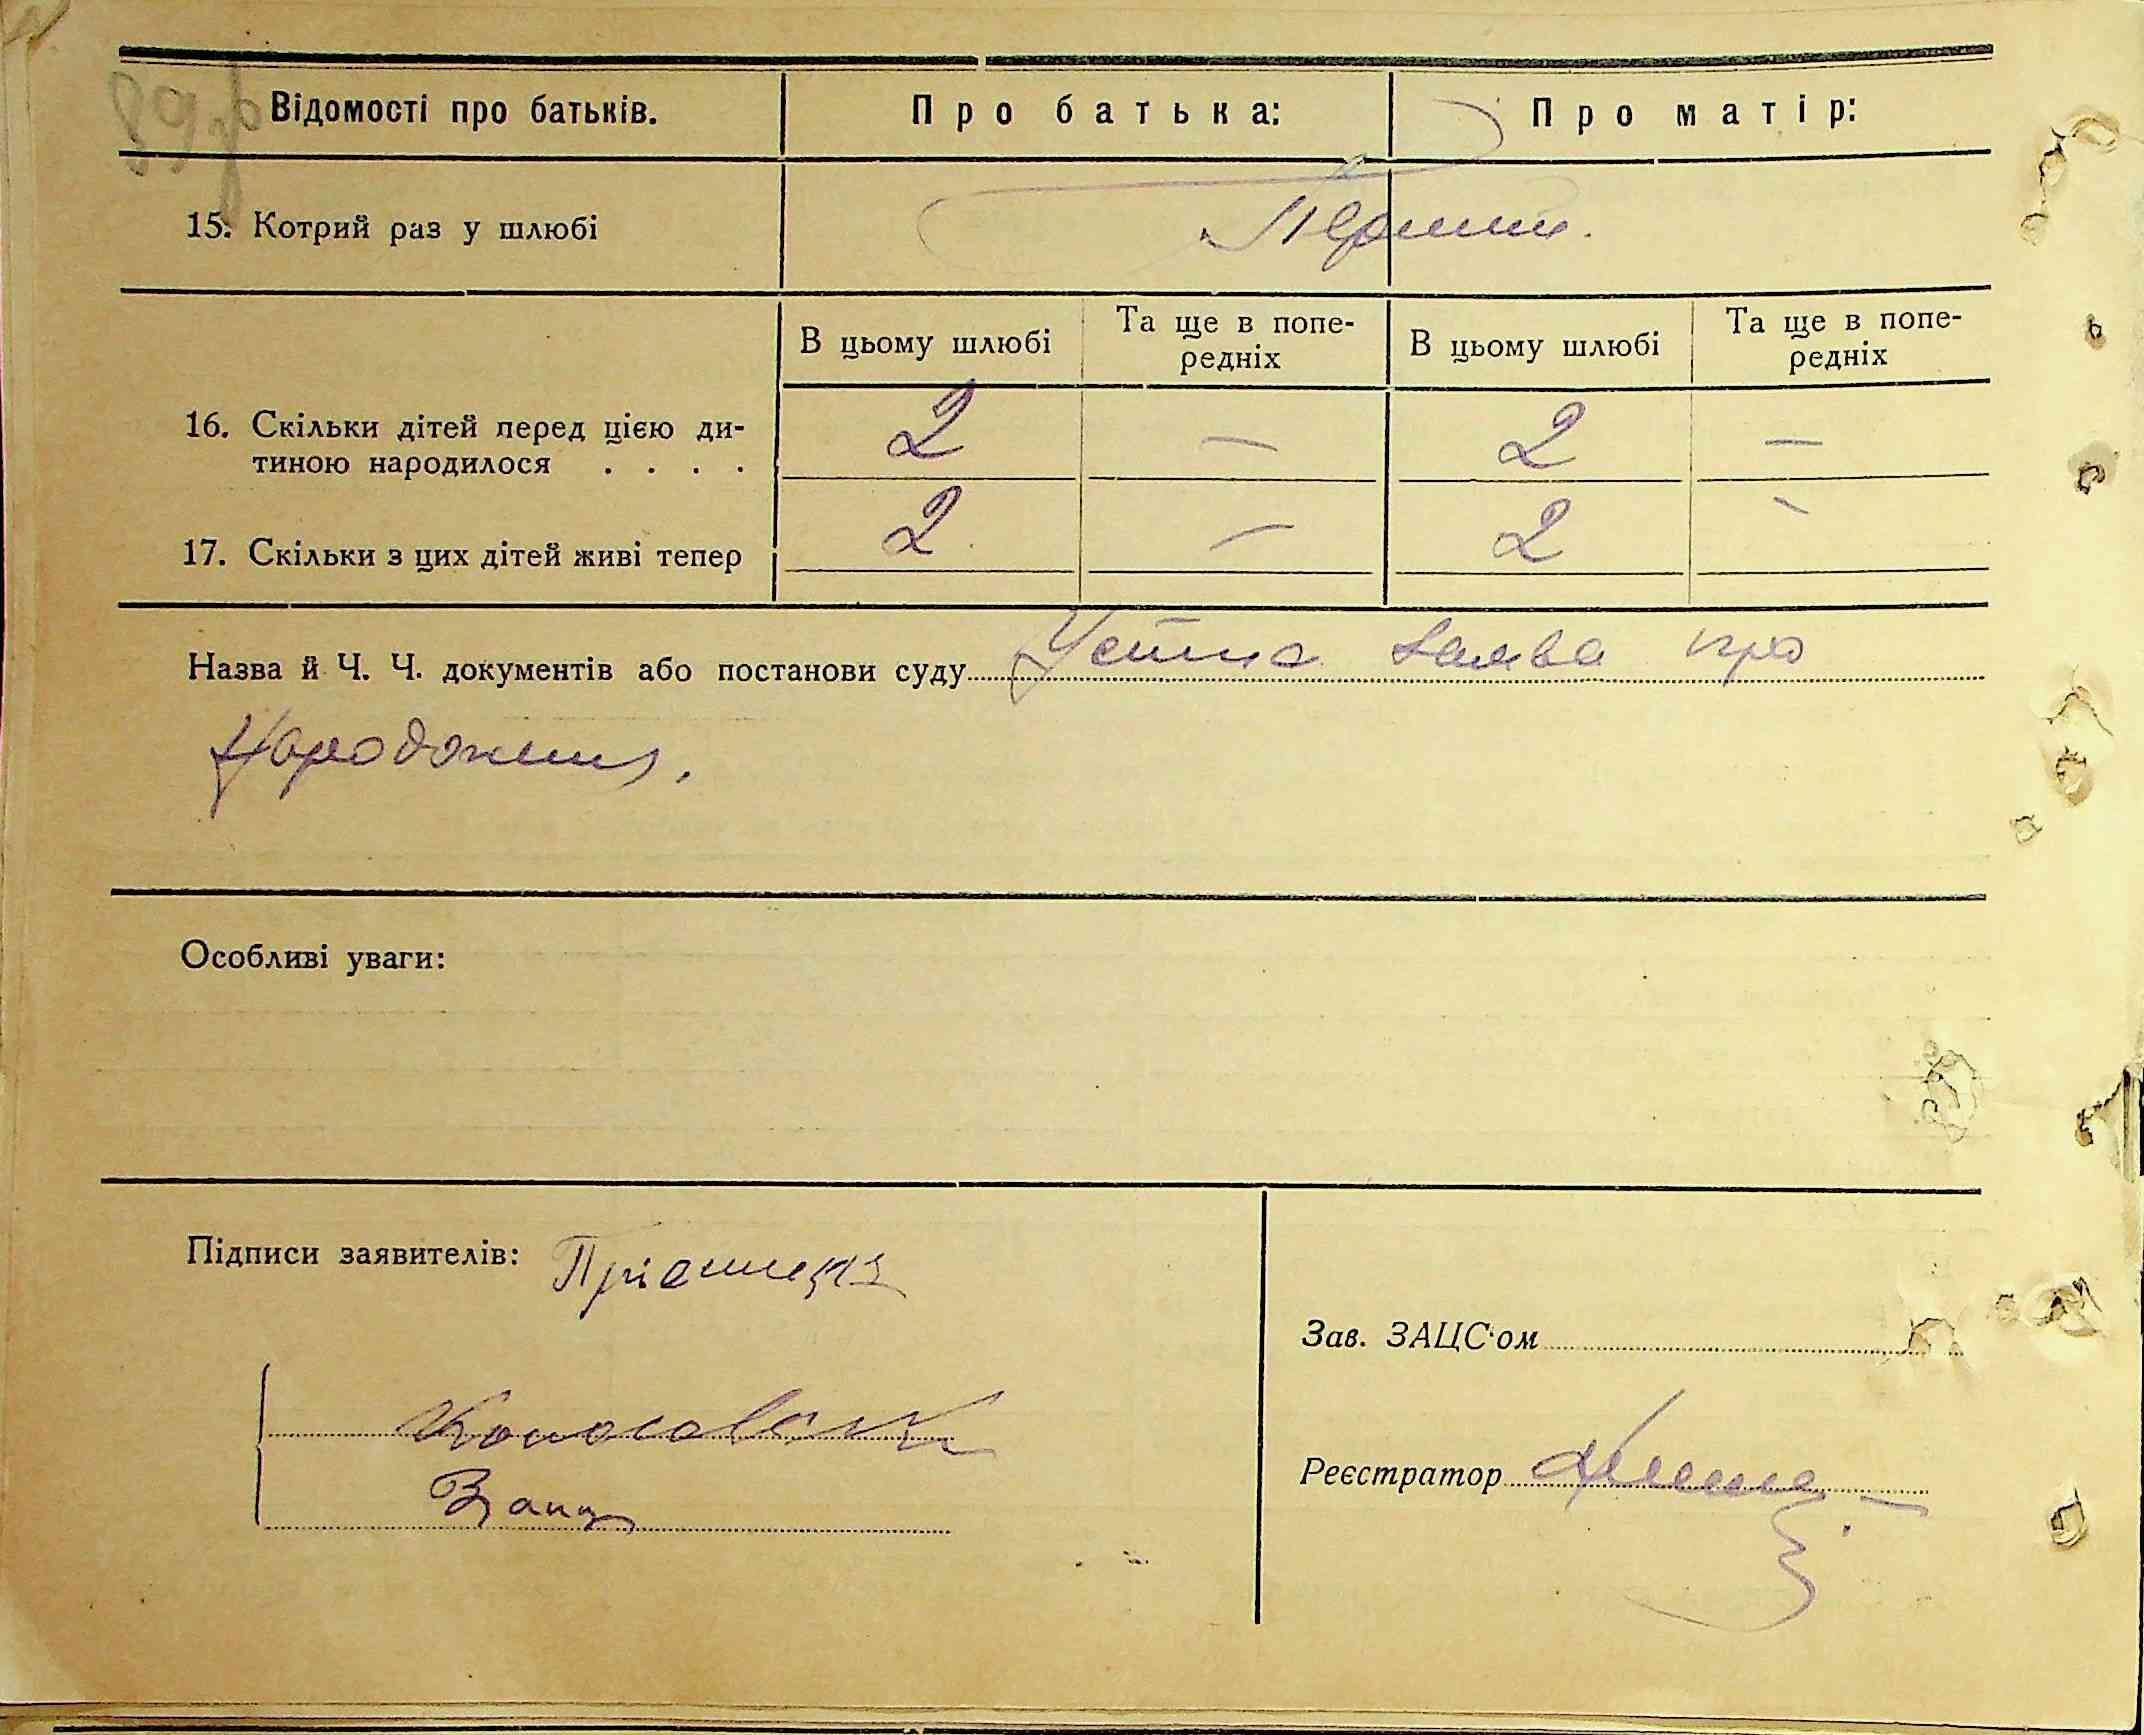 Відомості про батьків. Про батька: Про матір:
15. Котрий раз у шлюбі
В цьому шлюбі Та ще в попе-редніх В цьому шлюбі Та ще в попе-редніх
16. Скільки дітей перед цією ди- 2 — 2 —
тиною народилося . . . .
17. Скільки з цих дітей живі тепер 2 — 2 —
Назва й Ч. Ч. документів або постанови суду Устна заява про
народження.
Особливі уваги:
Підписи заявителів:
Зав. ЗАЦС'ом
Реєстратор